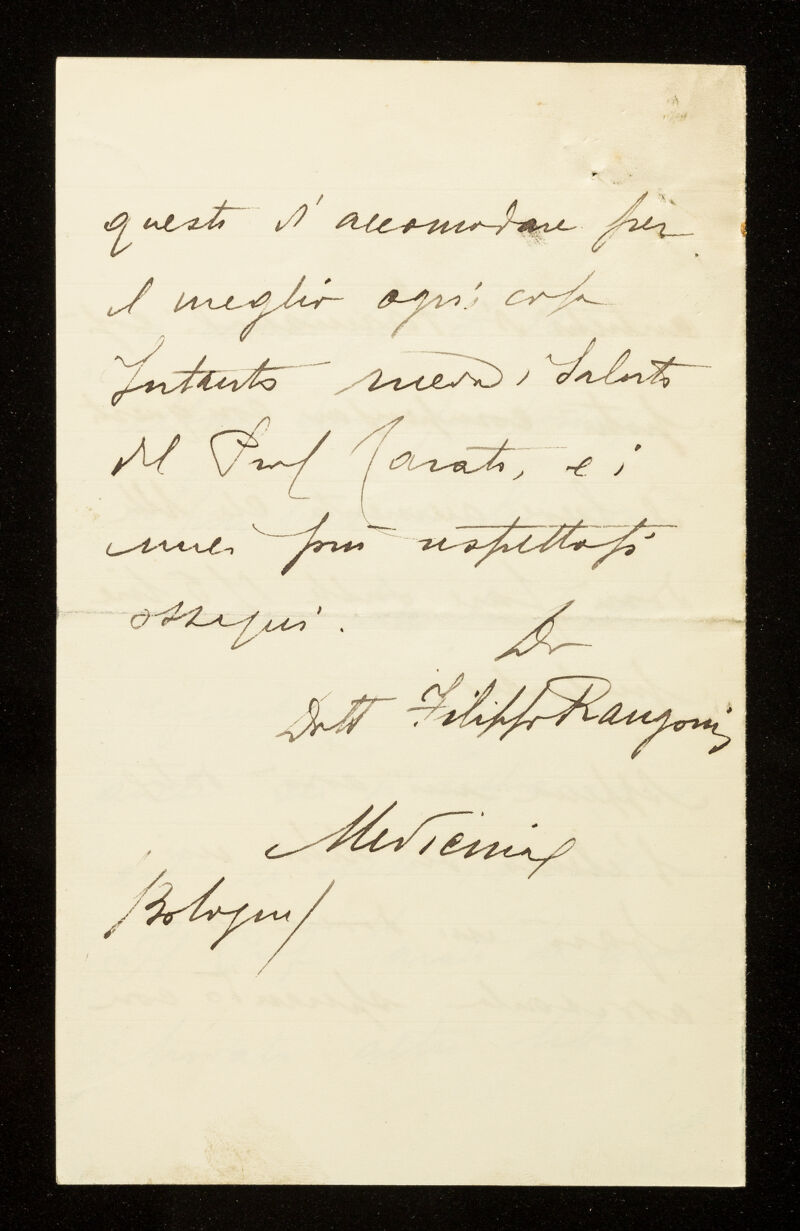 questi d' accomodare per
il meglio ogni cosa
Intanto riceva i saluti
del Prof e i
miei più rispettosi
ossequi.
Dr
Dott Filippo Rangoni
Medicina
Bologna